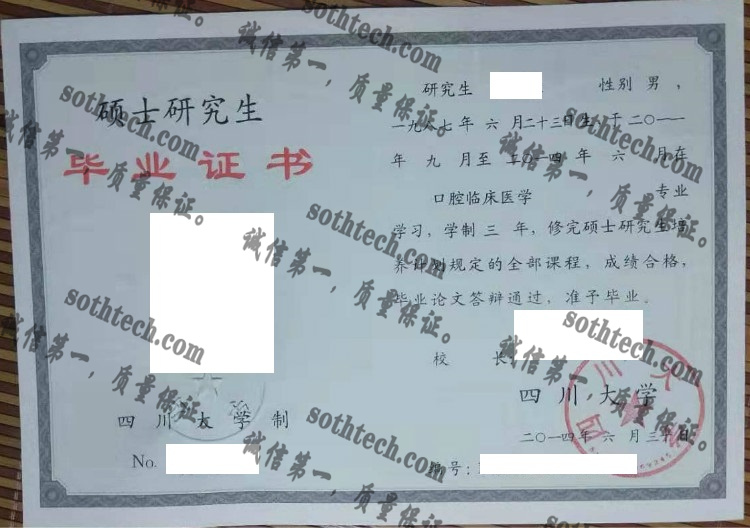 硕士研究生
毕业证书
四川大学制
No.
研究生 性别 男,
一九八七年 六 月二十三日生,于二〇一一
年 九 月至 二〇一四 年 六 月在
口腔临床医学 专业
学习,学制 三 年,修完硕士研究生培
养计划规定的全部课程,成绩合格,
毕业论文答辩通过,准予毕业。
校 长:
四川大学
二〇一四年 六 月三十日
编号:
四川大学
sothtech.com
诚信第一,质量保证。
sothtech.com
诚信第一,质量保证。
sothtech.com
诚信第一,质量保证。
sothtech.com
诚信第一,质量保证。
sothtech.com
诚信第一,质量保证。
sothtech.com
诚信第一,质量保证。
sothtech.com
诚信第一,质量保证。
sothtech.com
诚信第一,质量保证。